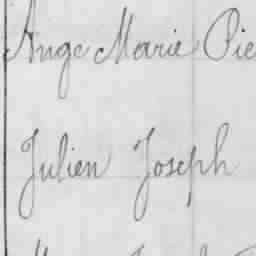 Ange Marie Pie
Julien Joseph